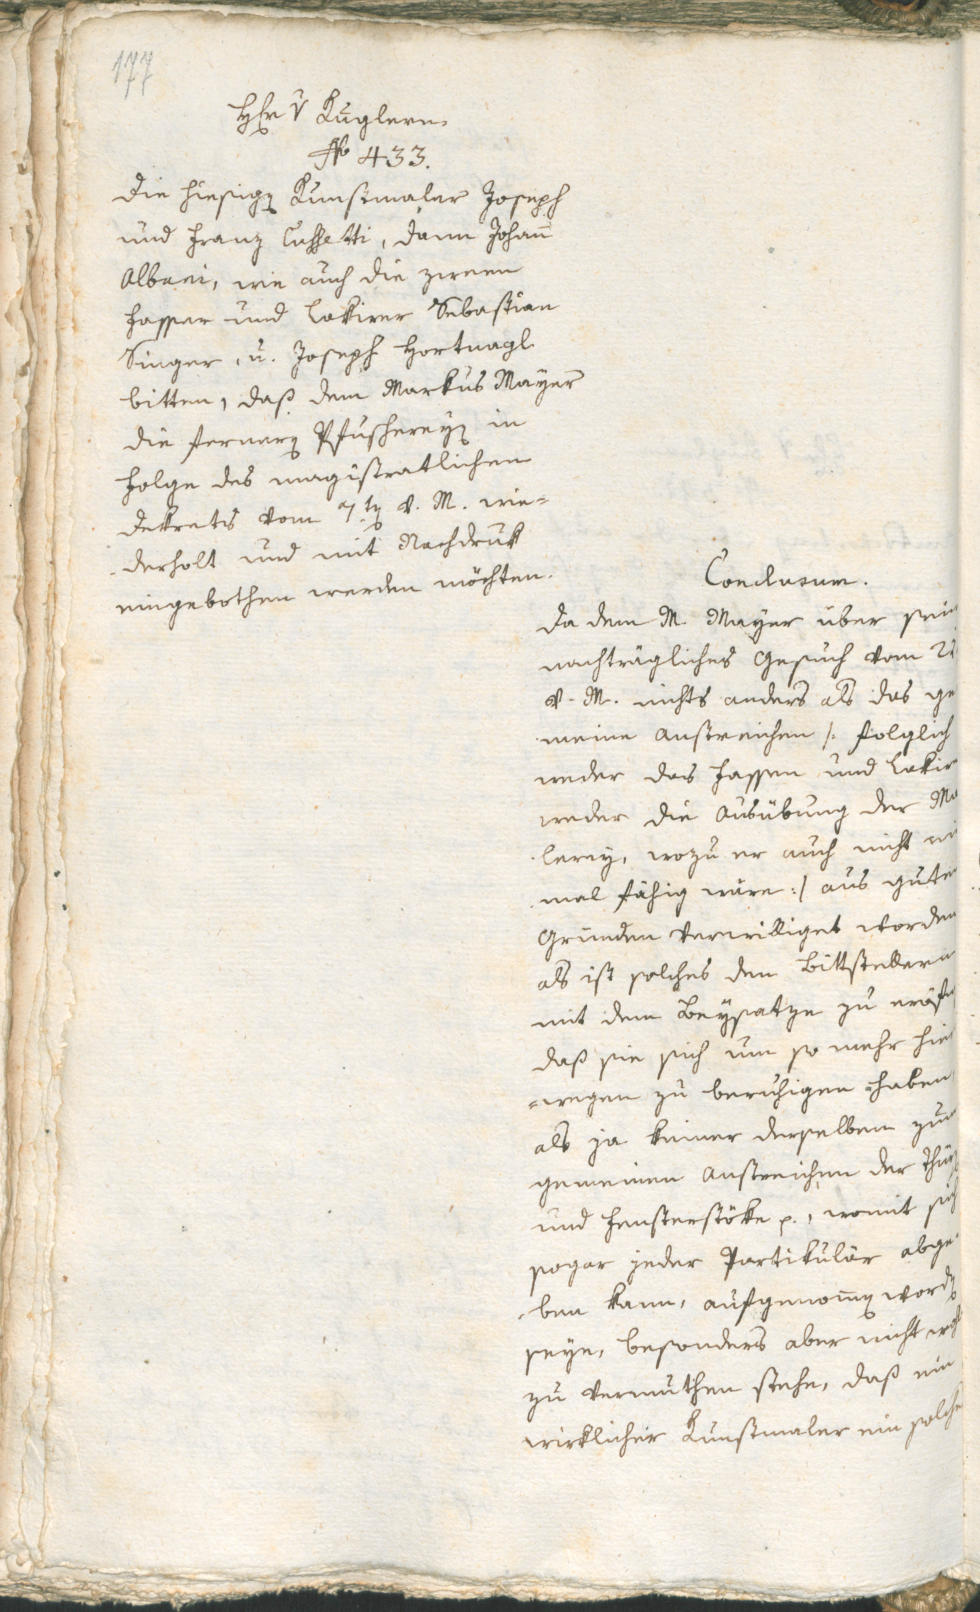 177
H[er]r v Kuglern.
No 433.
Die hiesigen Kunstmaler Joseph
und Franz Cussetti, dann Johann
Albani, wie auch die zween
Fasser und Lakirer Sebastian
Singer, u. Joseph Hortnagl
bitten, daß dem Markus Mayer
die fernere Pfuschereyen in
Folge des magistratlichen
Dekrets vom 7ten v. M. wie-
derholt und mit Nachdruk
eingebothen werden möchten.
Conclusum.
Da dem M. Mayer über sein
nachträgliches Gesuch vom
v. M. nichts anders als das ge
meine Anstreichen /: folglich
weder das Fassen und Lakir
weder die Ausübung der Ma
lerey, wozu er auch nicht ein
mal fähig wäre :/ aus guten
Gründen verwilliget worden
als ist solches den Bittstellern
mit dem Beysatze zu eröfn
daß sie sich um so mehr hie
wegen zu beruhigen haben
als ja keiner derselben zum
gemeinen Anstreichen der Thür
und Fensterstöke p., womit sich
sogar jeder Partikulär abge
ben kann, aufgenommen worden
seye, besonders aber nicht wohl
zu vermuthen stehe, daß ein
wirklicher Kunstmaler ein solche